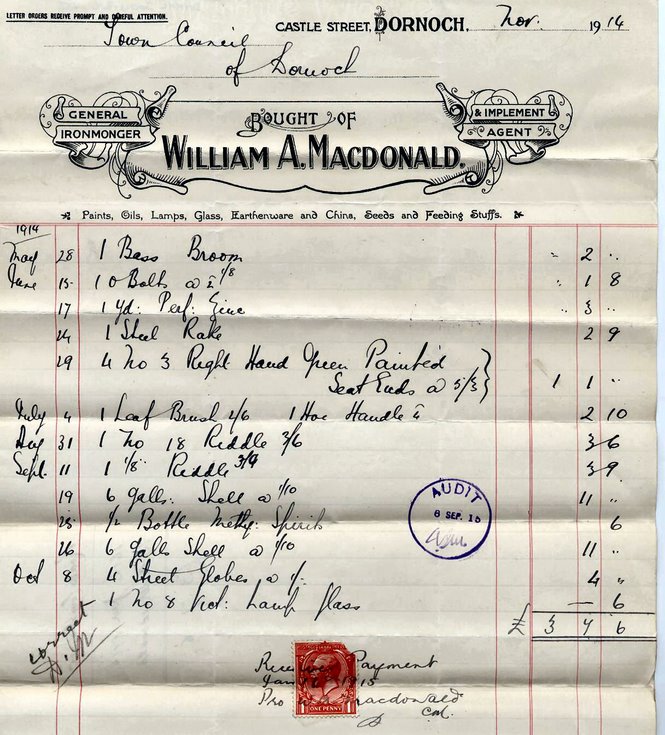 LETTER ORDERS RECEIVE PROMPT AND CAREFUL ATTENTION.
CASTLE STREET, DORNOCH, Nov. 1914
Town Council
of Dornoch
GENERAL IRONMONGER
BOUGHT OF
& IMPLEMENT AGENT
WILLIAM A. MACDONALD.
Paints, Oils, Lamps, Glass, Earthenware and China, Seeds and Feeding Stuffs.
1914
May 28 1 Bass Broom " 2 "
June 15 10 Bolts @ 1/8 " 1 8
17 1 yd: Perf: Zinc " 3 "
24 1 Steel Rake 2 9
29 4 No 3 Right Hand Green Painted
Seat Ends @ 5/3 } 1 1 "
July 4 1 Leaf Brush 2/6 1 Hoe Handle 2 10
Aug 31 1 No 18 Riddle 3/6 3 6
Sept. 11 1 1/8 Riddle 3/9 3 9
19 6 galls: Shell @ 1/10 11 "
25 1/2 Bottle Methy: Spirits 6
26 6 galls Shell @ 1/10 11 "
Oct 8 4 Street Globes @ 1/- 4 "
1 No 8 Vict: Lamp Glass — 6
£ 3 7 6
AUDIT
8 SEP. 15
correct
Received Payment
Jan 1915
Pro W. A. Macdonald
ONE PENNY